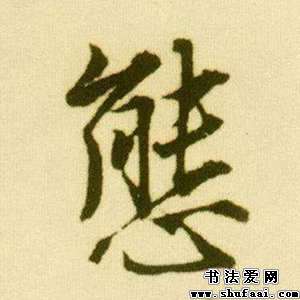 態
书法爱网
www.shufaai.com